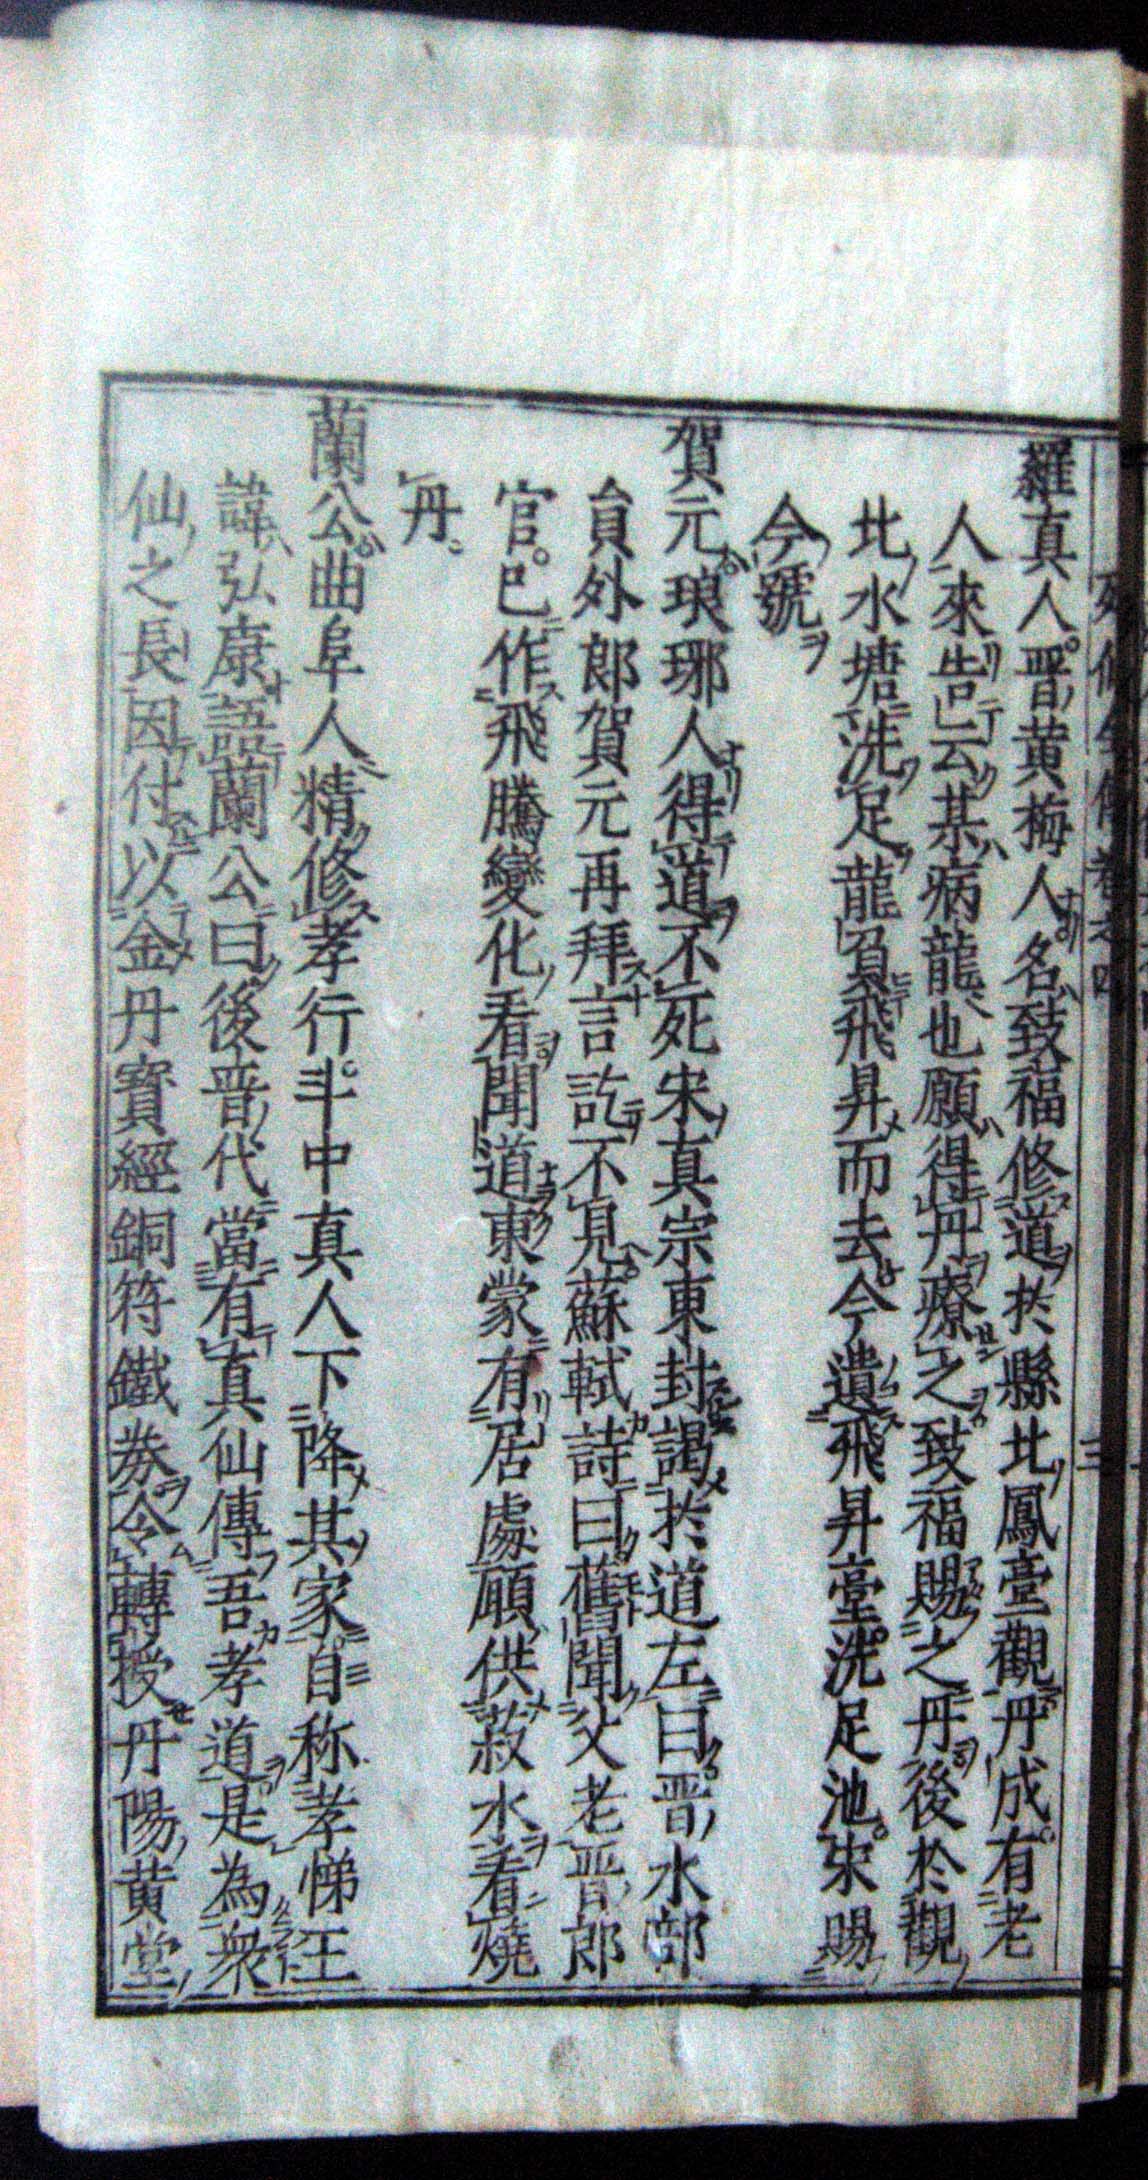 羅真人晋黄梅人名致福修道於縣北鳳臺觀丹成有老
人來告云某病龍也願得丹療之致福賜之丹後於觀
北水塘洗足龍負飛昇而去今遺飛昇臺洗足池宋賜
今號
賀元琅琊人得道不死宋真宗東封謁於道左曰晋水部
員外郎賀元再拜言訖不見蘇軾詩曰舊聞父老晋郎
官已作飛騰變化看聞道東蒙有居處願供菽水看燒
丹
蘭公曲阜人精修孝行斗中真人下降其家自称孝悌王
諱弘康語蘭公曰後晋代當有真仙傳吾孝道是為衆
仙之長因付以金丹寳經銅符鐵券令轉授丹陽黄堂